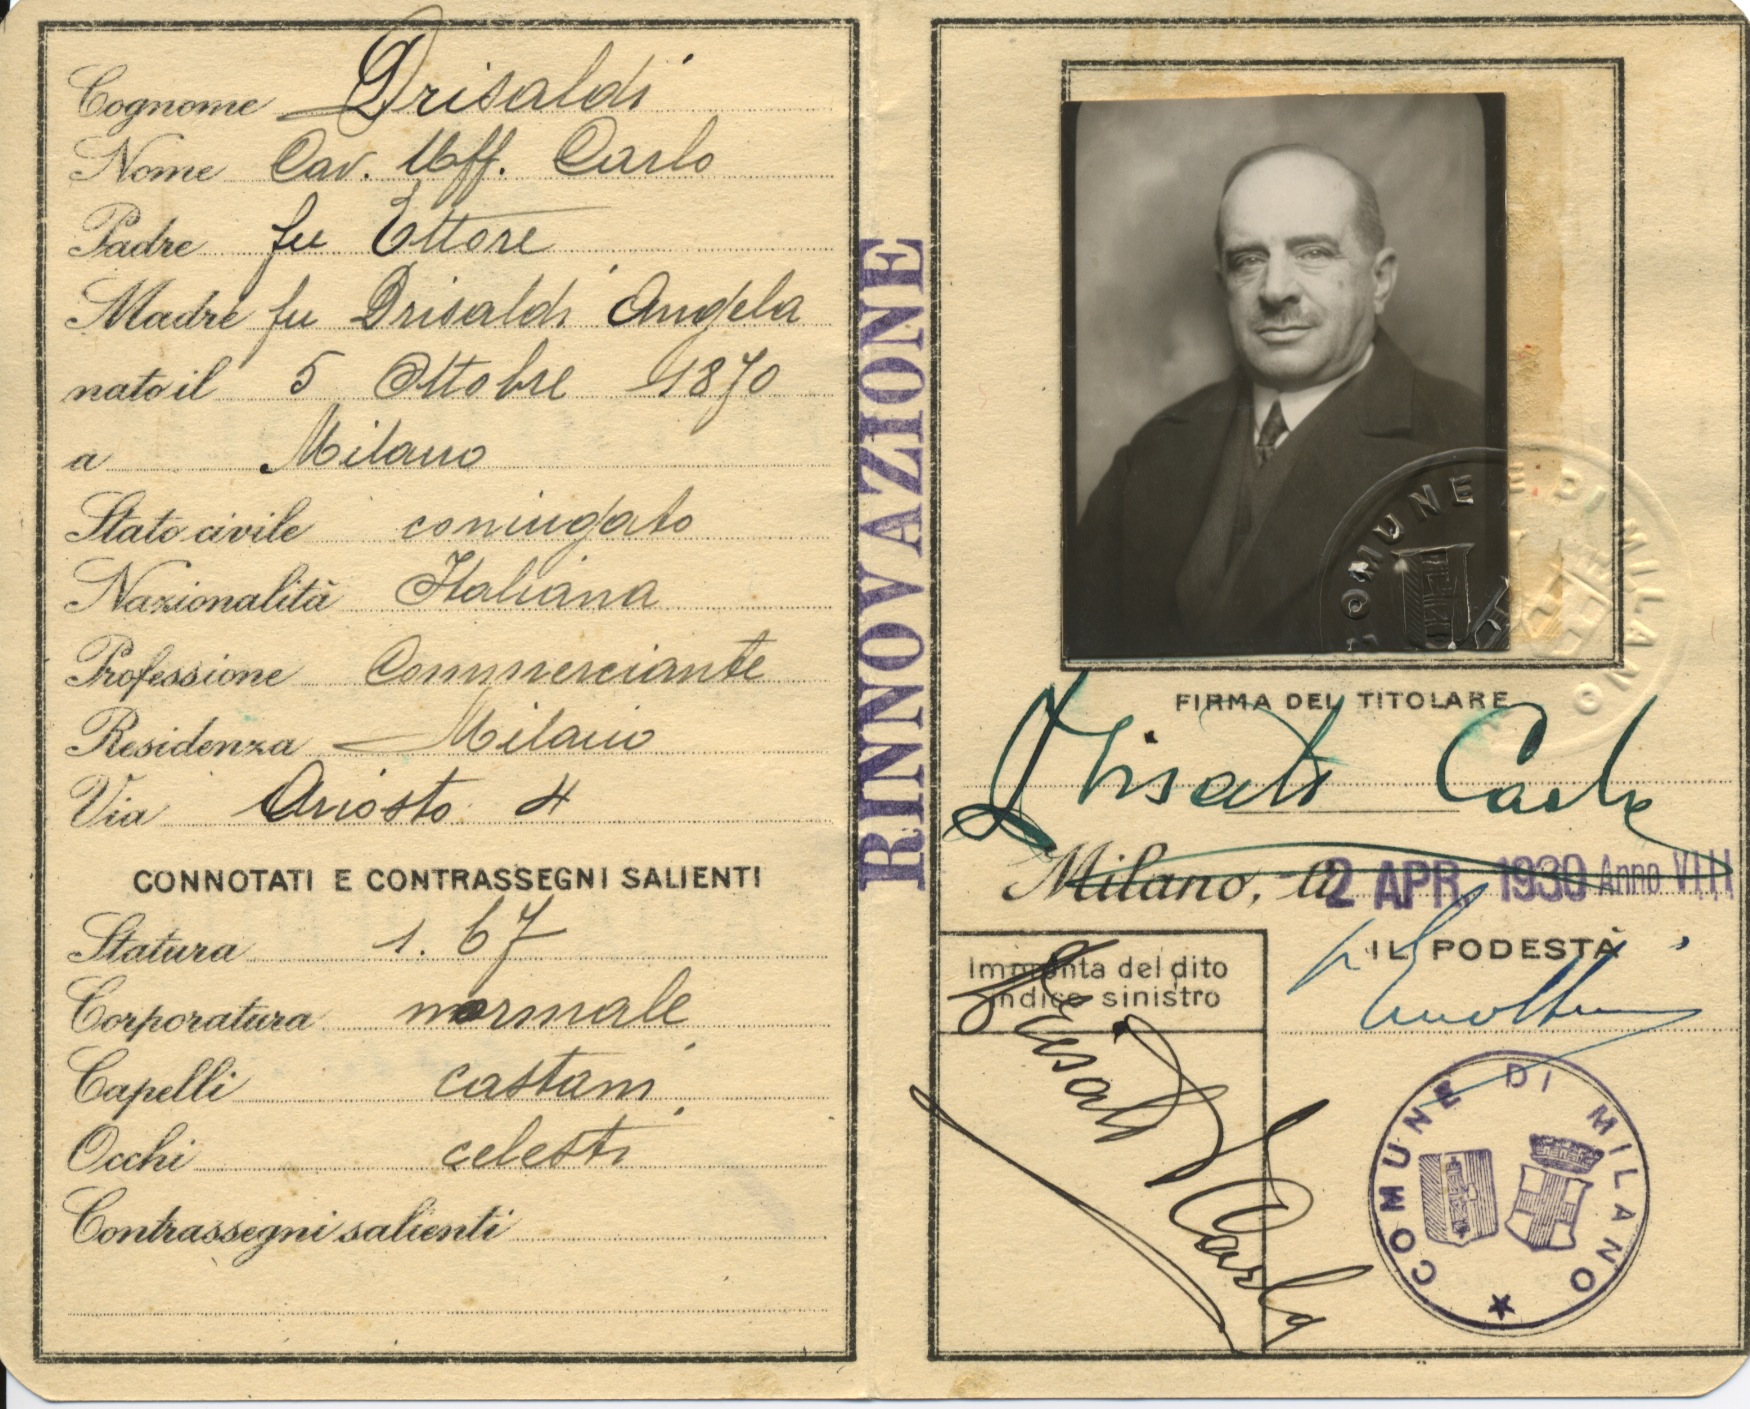 Cognome Grisaldi
Nome Cav. Uff. Carlo
Padre fu Ettore
Madre fu Grisaldi Angela
nato il 5 Ottobre 1870
a Milano
Stato civile coniugato
Nazionalità Italiana
Professione Commerciante
Residenza Milano
Via Ariosto 4
CONNOTATI E CONTRASSEGNI SALIENTI
Statura 1.67
Corporatura normale
Capelli castani
Occhi celesti
Contrassegni salienti
RINNOVAZIONE
COMUNE DI MILANO
FIRMA DEL TITOLARE
Carlo
Milano, li 2 APR. 1930 Anno VIII
IL PODESTÀ
Impronta del dito
indice sinistro
Carlo
COMUNE DI MILANO